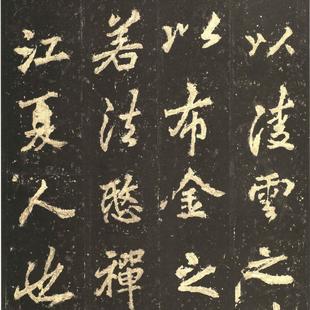 以淩雲之
以布金之
若法愍禪
江夏人也